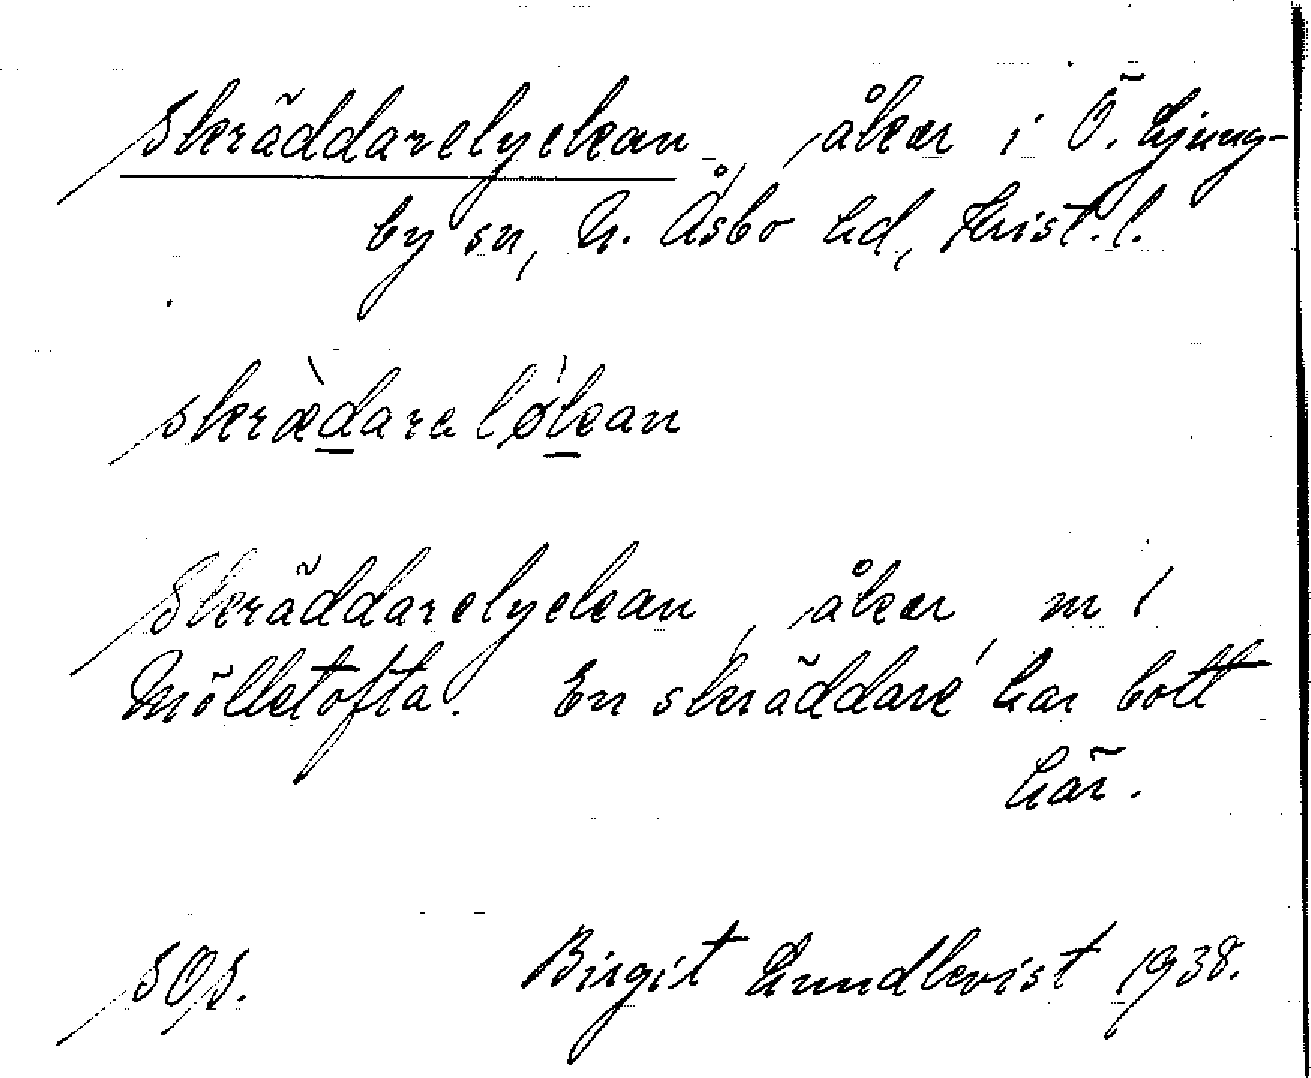 Skräddarelyckan, åker i Ö. Ljung-
by sn, N. Åsbo hd, Krist. l.
skræ̀dareló̩kan
Skräddarelyckan, åker, m /
Mölletofta. En skräddare har bott
här.
SOS. Birgit Lundkvist 1938.